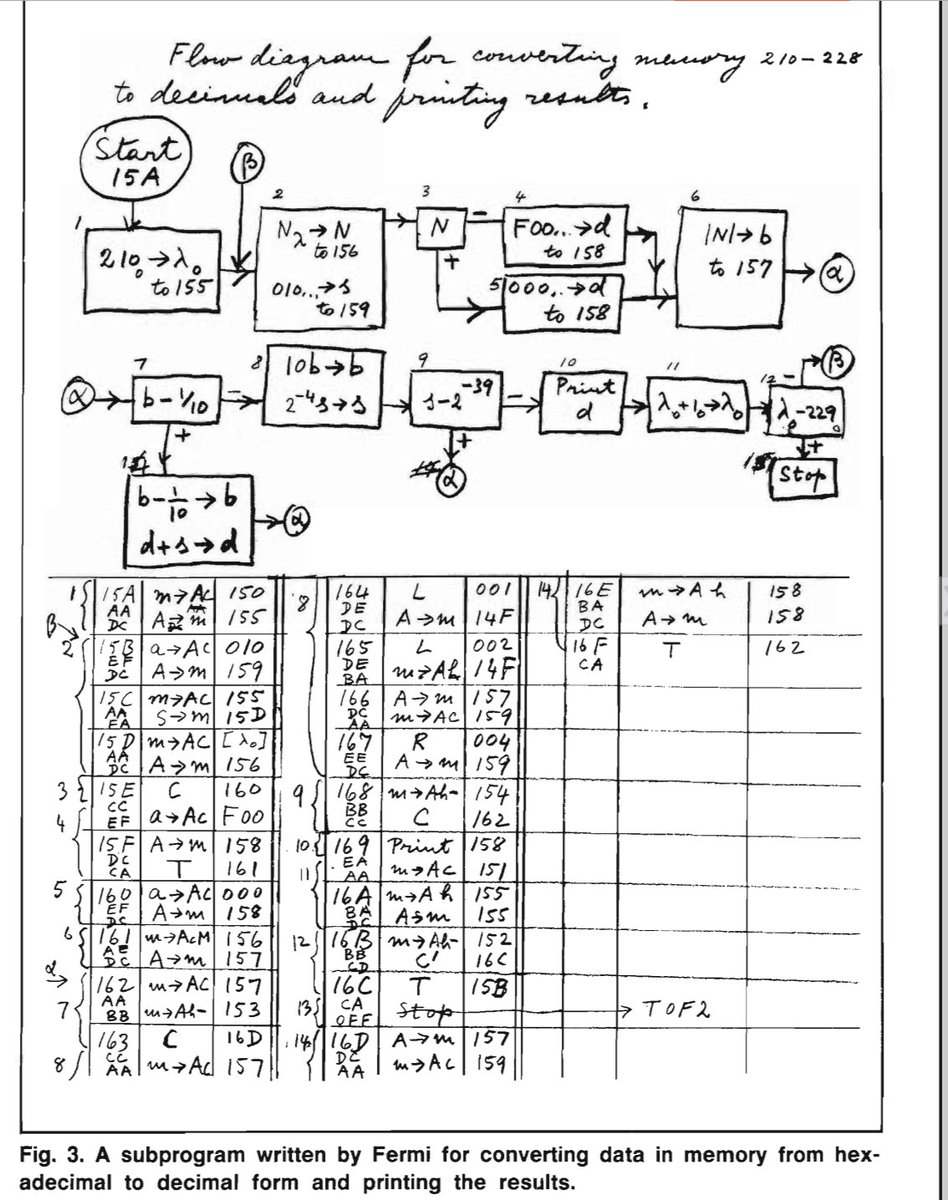 Flow diagram for converting memory 210–228
to decimals and printing results.
Start
15A
β
1
210₀→λ₀
to 155
2
N_λ→N
to 156
010...→s
to 159
3
N
−
+
4
F00...→d
to 158
5
000...→d
to 158
6
|N|→b
to 157
α
α
7
b−1/10
−
+
8
10b→b
2⁻⁴s→s
9
s−2⁻³⁹
−
+
α
10
Print
d
11
λ₀+1₀→λ₀
12
−
λ₀−229₀
+
β
Stop
b−1/10→b
d+s→d
α
1 15A m→Ac 150
AA
DC A→m 155
β
2 15B a→Ac 010
EF
DC A→m 159
15C m→Ac 155
AA
EA S→m 15D
15D m→Ac [λ₀]
AA
DC A→m 156
3 15E C 160
CC
4 EF a→Ac F00
15F A→m 158
DC
CA T 161
5 160 a→Ac 000
EF
DC A→m 158
6 161 m→AcM 156
AE
DC A→m 157
α
7 162 m→Ac 157
AA
BB m→Ah− 153
163 C 16D
CC
8 AA m→Ac 157
8 164 L 001
DE
DC A→m 14F
165 L 002
DE
BA m→Ah 14F
166 A→m 157
DC
AA m→Ac 159
167 R 004
EE
DC A→m 159
9 168 m→Ah− 154
BB
CC C 162
10 169 Print 158
EA
11 AA m→Ac 151
16A m→Ah 155
BA
DC A→m 155
12 16B m→Ah− 152
BB
CD C' 16C
16C T 15B
CA
13 OFF Stop → TOF2
14 16D A→m 157
DC
AA m→Ac 159
14 16E m→Ah 158
BA
DC A→m 158
16F T 162
CA
Fig. 3. A subprogram written by Fermi for converting data in memory from hex-
adecimal to decimal form and printing the results.